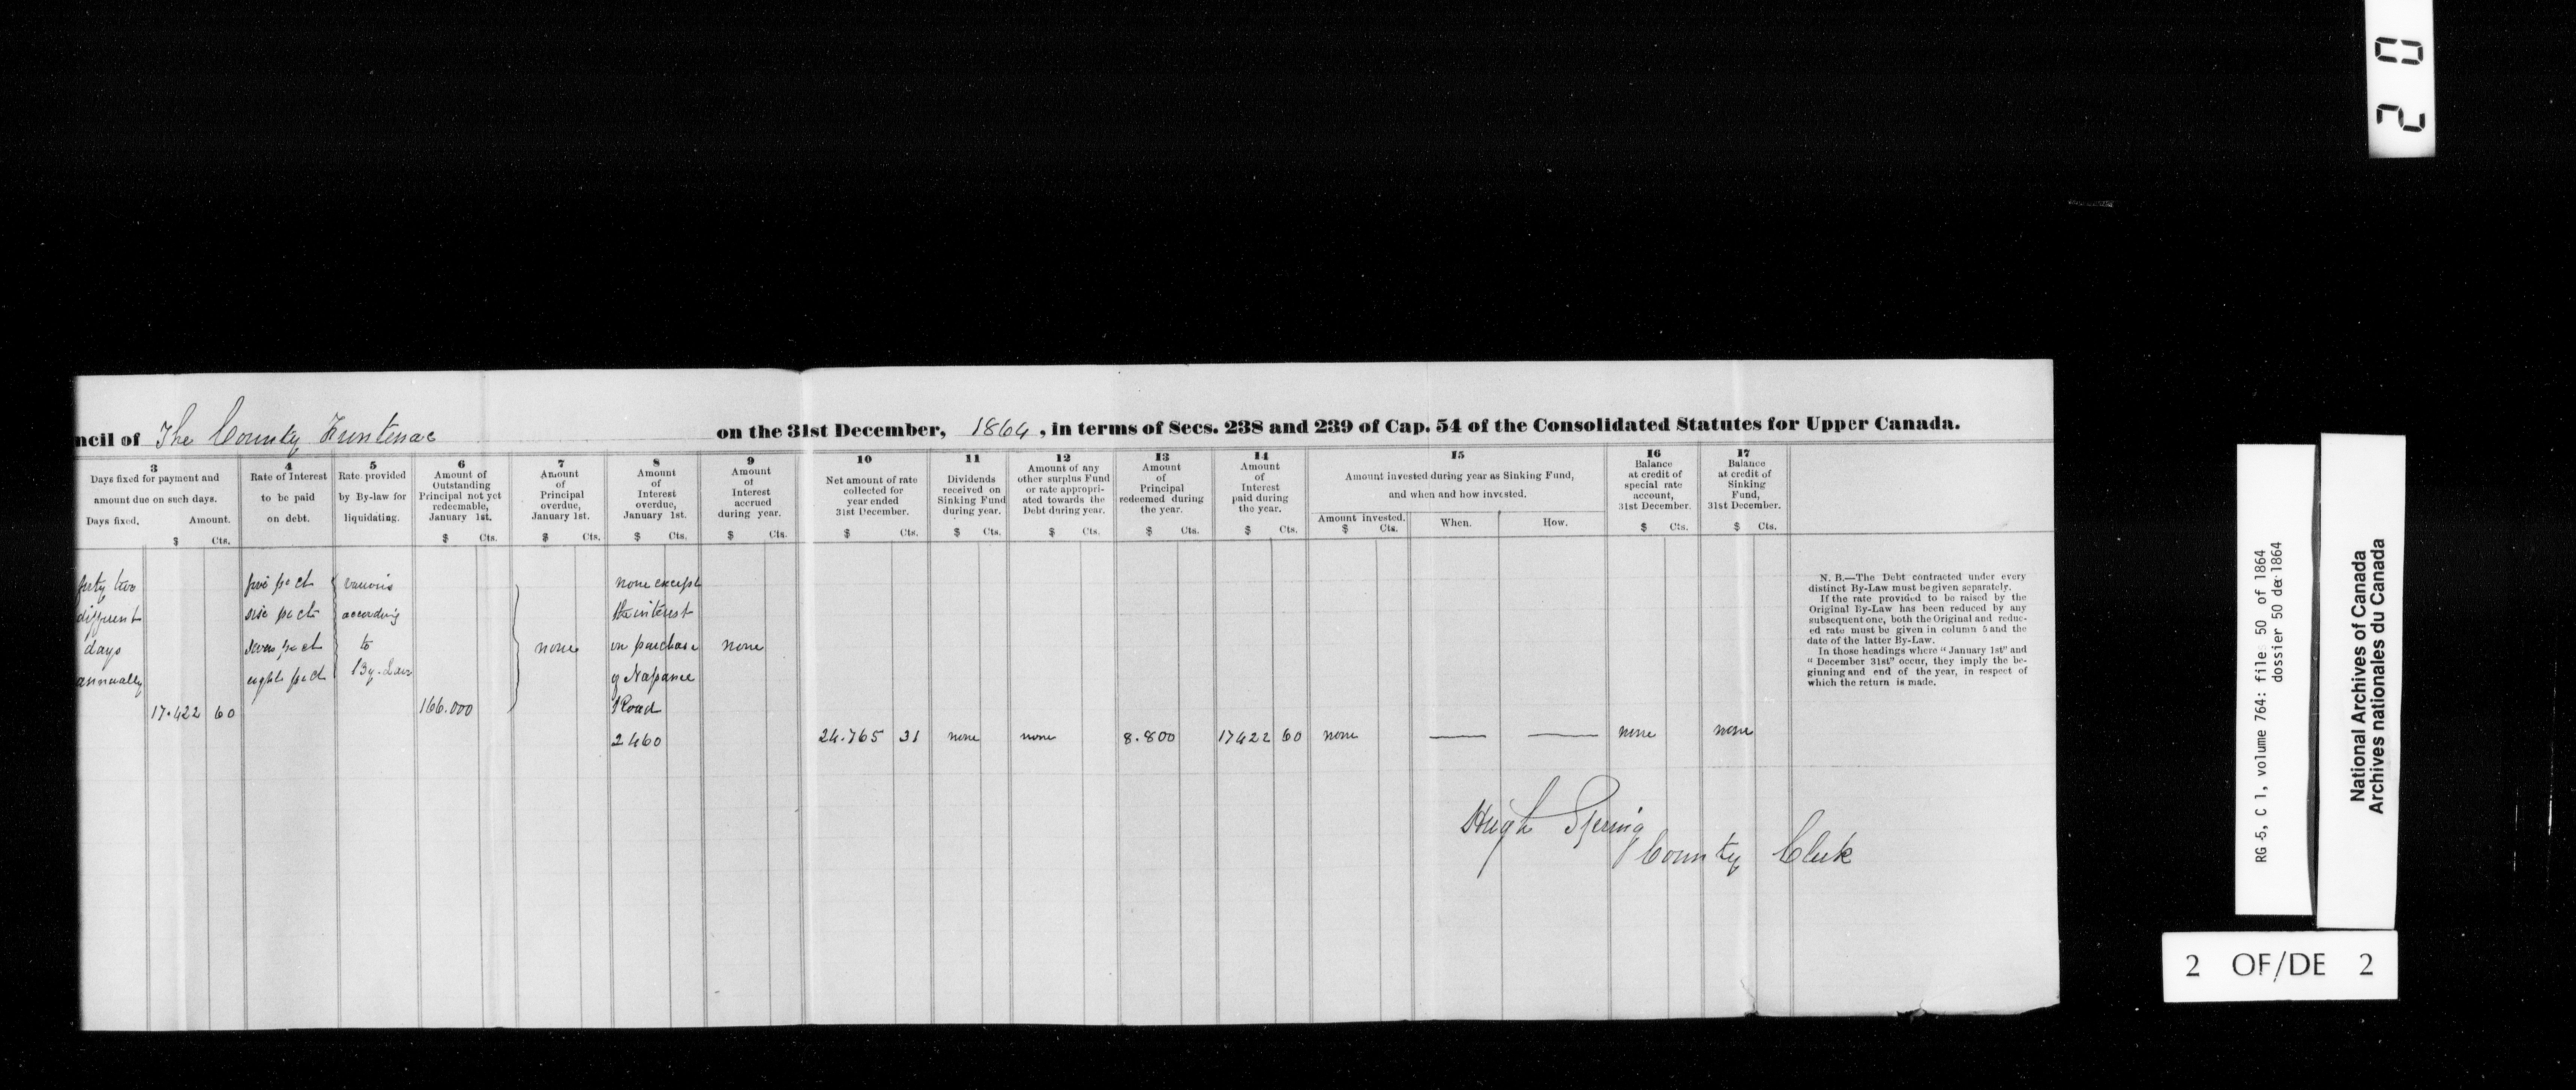 ncil of The County Frontenac on the 31st December, 1864, in terms of Secs. 238 and 239 of Cap. 54 of the Consolidated Statutes for Upper Canada.
3
Days fixed for payment and
amount due on such days.
Days fixed. Amount.
$ Cts.
4
Rate of Interest
to be paid
on debt.
5
Rate provided
by By-law for
liquidating.
6
Amount of
Outstanding
Principal not yet
redeemable,
January 1st.
$ Cts.
7
Amount
of
Principal
overdue,
January 1st.
$ Cts.
8
Amount
of
Interest
overdue,
January 1st.
$ Cts.
9
Amount
of
Interest
accrued
during year.
$ Cts.
10
Net amount of rate
collected for
year ended
31st December.
$ Cts.
11
Dividends
received on
Sinking Fund
during year.
$ Cts.
12
Amount of any
other surplus Fund
or rate appropri-
ated towards the
Debt during year.
$ Cts.
13
Amount
of
Principal
redeemed during
the year.
$ Cts.
14
Amount
of
Interest
paid during
the year.
$ Cts.
15
Amount invested during year as Sinking Fund,
and when and how invested.
Amount invested. When. How.
$ Cts.
16
Balance
at credit of
special rate
account,
31st December.
$ Cts.
17
Balance
at credit of
Sinking
Fund,
31st December.
$ Cts.
forty two
different
days
annually
17.422 60
five pr ct
six pr ct
seven pr ct
eight pr ct
various
according
to
By-Law
166.000
none
none except
the interest
on purchase
of Napanee
Road
2460
none
24.765 31
none
none
8.800
17422 60
none
none
none
N. B.—The Debt contracted under every
distinct By-Law must be given separately.
If the rate provided to be raised by the
Original By-Law has been reduced by any
subsequent one, both the Original and reduc-
ed rate must be given in column 5 and the
date of the latter By-Law.
In those headings where "January 1st" and
"December 31st" occur, they imply the be-
ginning and end of the year, in respect of
which the return is made.
Hugh
County Clerk
20
RG 5, C 1, volume 764: file 50 of 1864
dossier 50 de 1864
National Archives of Canada
Archives nationales du Canada
2 OF/DE 2